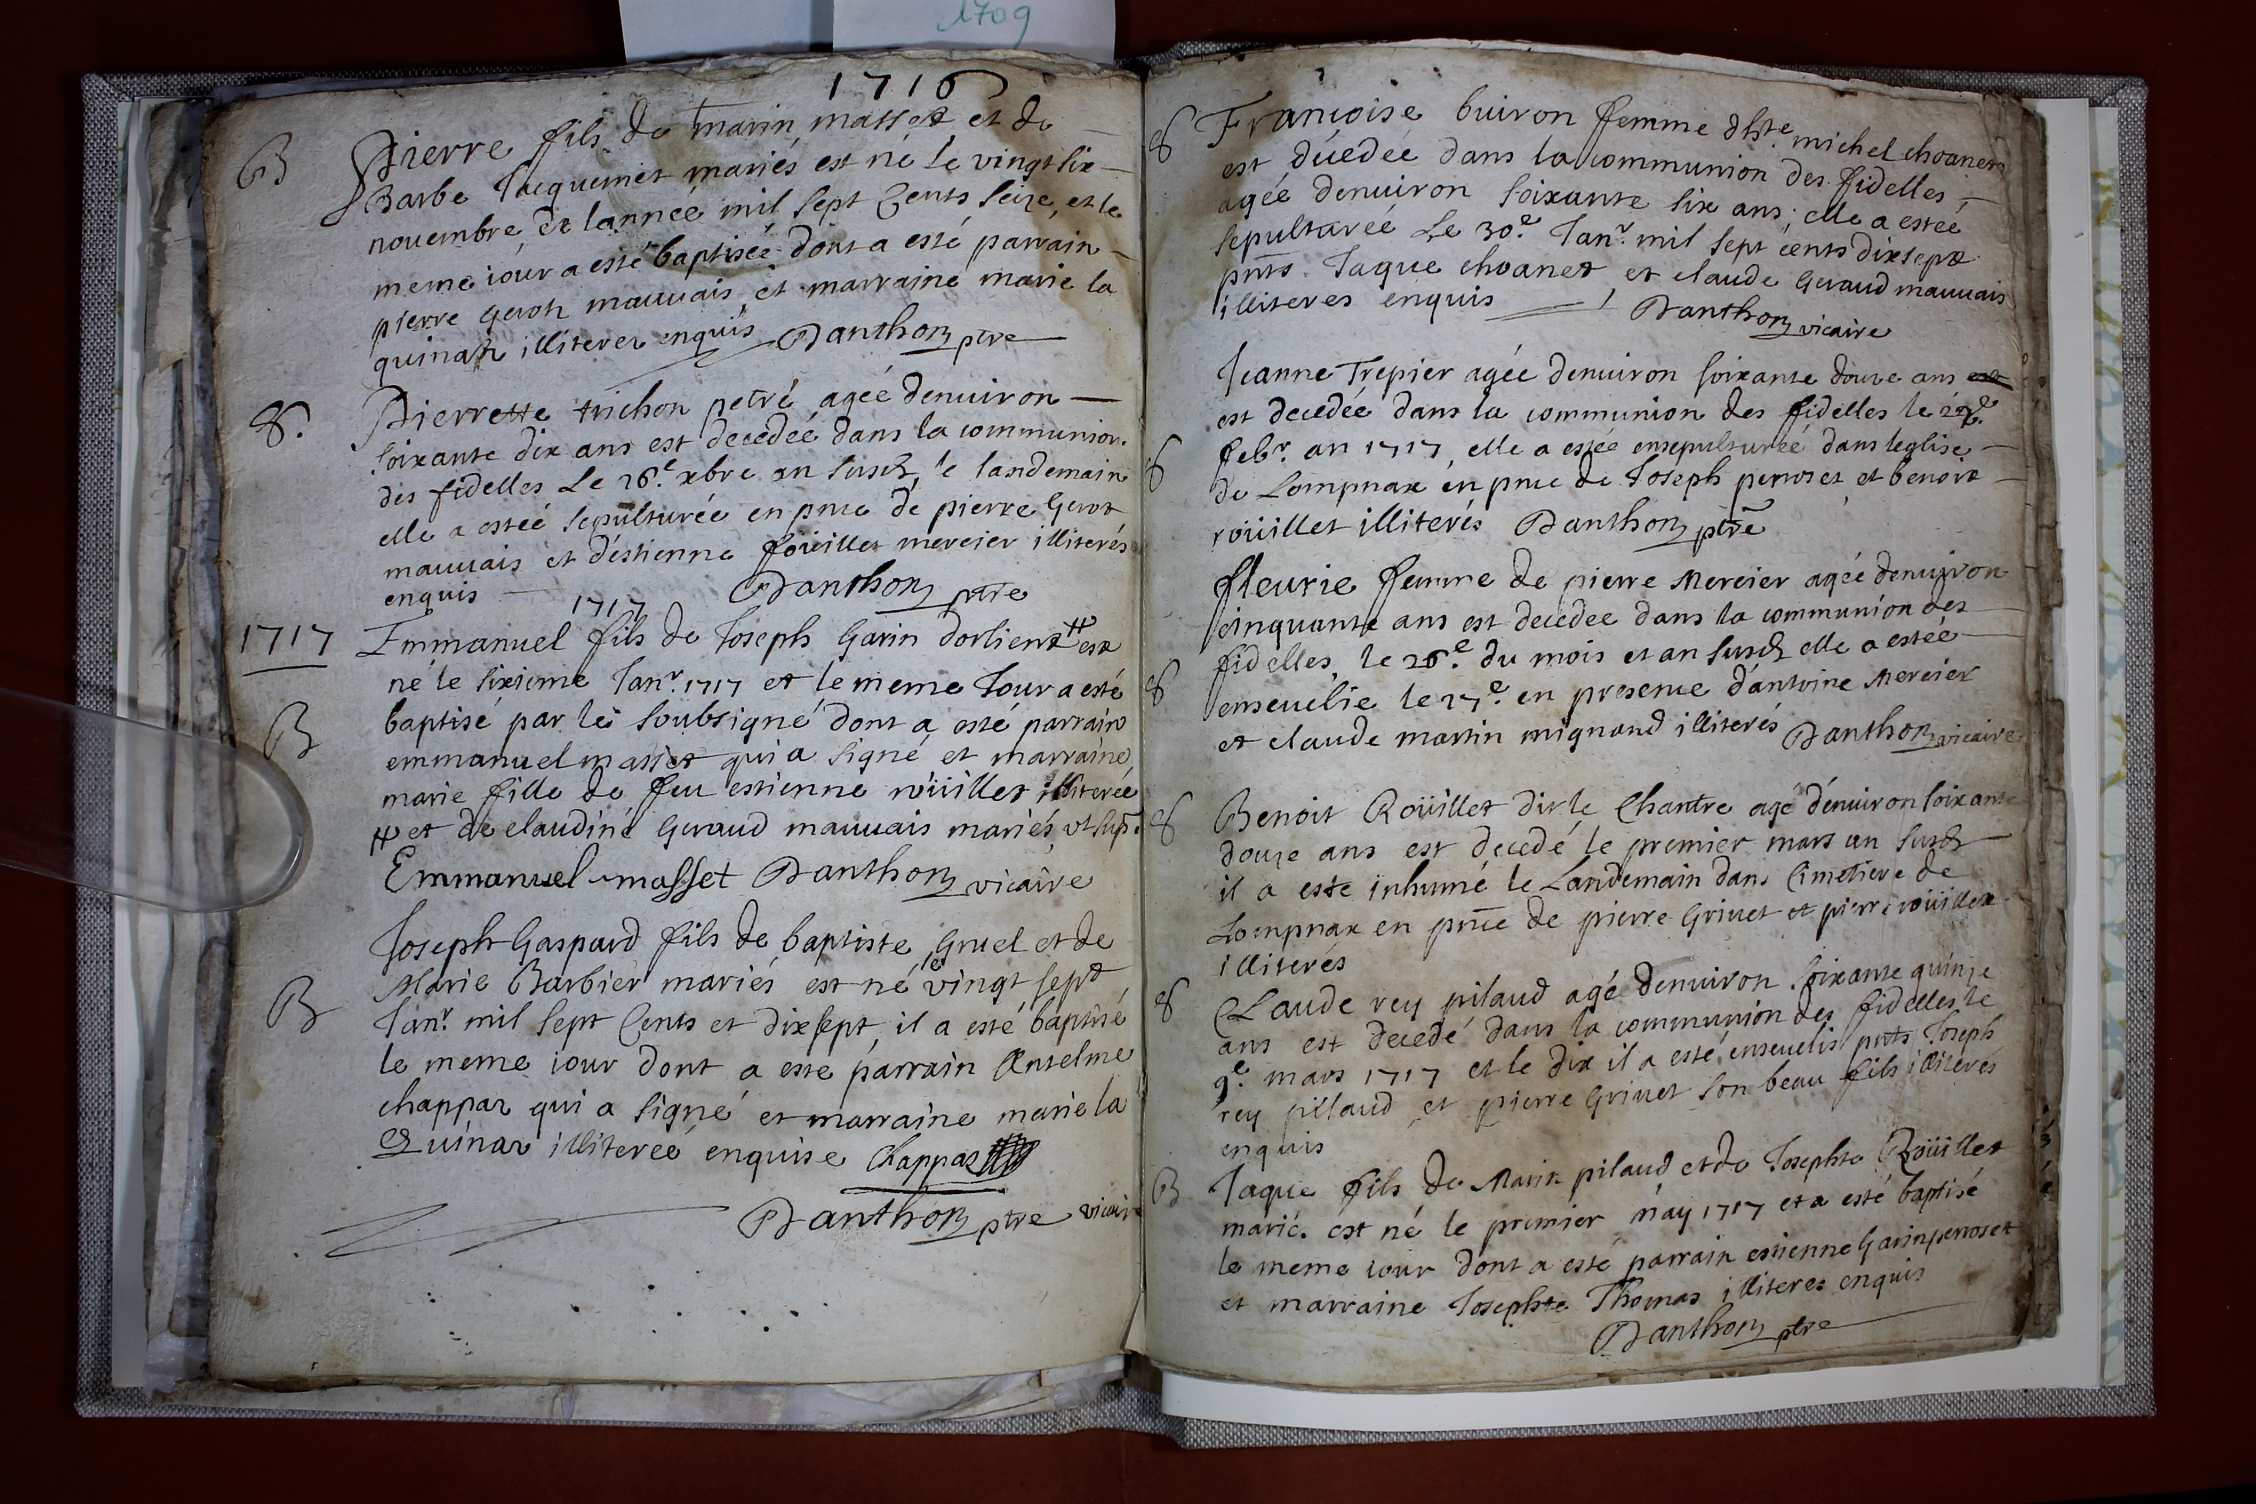 1709
1716
B
Pierre fils de marin masset et de
Barbe Jacquemet mariés est né le vingt six
novembre de lannée mil sept Cents seize, et le
meme iour a esté baptisée dont a esté parrain
pierre gerot mauvais et marraine marie la
quinat illiterez enquis Danthon ptre
S.
Pierrette trichon petré agéé denuiron
soixante dix ans est decedéé dans la communion
des fidelles Le 26e xbre an susd le landemain
elle a esteé sepulturée en pnce de pierre Gerot
mauvais et d'estienne foüillet mercier illiterés
enquis Danthon ptre
1717
1717
Emmanuel fils de Joseph Garin dorlient # est
né le sixieme Janr. 1717 et le meme Jour a esté
baptisé par le soubsigné dont a esté parrain
B
emmanuel masset qui a signé et marraine
marie fille de feu estienne roüillet illiterée
# et de claudine Geraud mauvais mariés vt sup.
Emmanuel masset Danthon vicaire
Joseph Gaspard fils de baptiste Gruel et de
Marie Barbier mariés est né le vingt sept
B
Janr. mil sept Cents et dixsept, il a esté baptisé
le meme iour dont a este parrain Anselme
chappaz qui a signé et marraine marie la
Quinaz illitereé enquise Chappaz
Danthon ptre vicair
S
Françoise buiron femme dhte michel choanet
est décédée dans la communion des fidelles,
agée denuiron soixante six ans; elle a estée
sepultureé Le 30e Janr. mil sept cents dixsept
pnts. Jaque choanet, et claude Geraud mauvais
illiteres enquis Danthon vicaire
Jeanne Trepier agée denuiron soixante douze ans est
est decedée dans la communion des fidelles le
S
febr. an 1717, elle a estée ensepulturéé dans leglise
de Lompnax en pnce de Joseph perroset et benoit
roüillet illiterés Danthon ptre
fleurie femme de pierre Mercier agéé denuiron
cinquante ans est decedee dans la communion des
fidelles, le 26e du mois et an susd elle a estéé
S
enseuelie le 27e en presence d'antoine Mercier
et claude martin mignand illiterés Danthon vicaire
S
Benoit Roüillet dit le Chantre agé d'enuiron soixante
douze ans est decedé le premier mars an susd
il a este inhumé le Landemain dans Cimetiere de
Lompnax en pnce de pierre Griuet et pierre roüillet
illiterés
S
Claude rey pilaud agé denuiron soixante quinze
ans est decedé dans la communion des fidelles le
9e. mars 1717 et le dix il a esté enseuelis pnts Joseph
rey pillaud et pierre Griuet son beau fils illiteres
enquis
B
Jaque fils de Marin pilaud et de Josephte Roüillet
marié. est né le premier may 1717 et a esté baptisé
le meme iour dont a esté parrain estienne Garin perroset
et marraine Josephte Thomas illiteres enquis
Danthon ptre